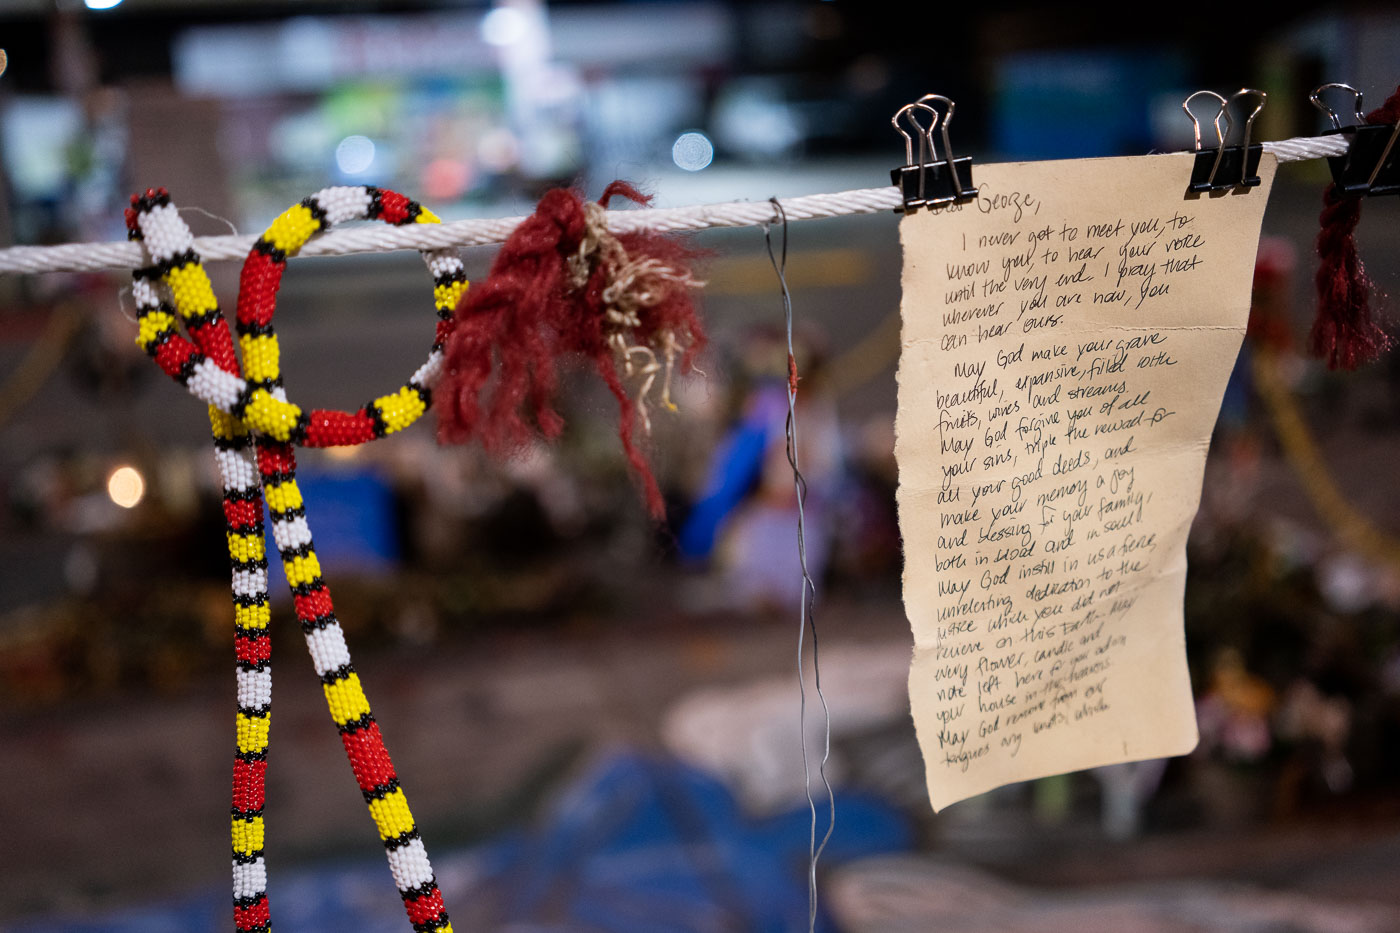 Dear George,
I never got to meet you, to
know you, to hear your voice
until the very end. I pray that
wherever you are now, you
can hear ours.
May God make your grave
beautiful, expansive, filled with
fruits, wines and streams.
May God forgive you of all
your sins, triple the reward for
all your good deeds, and
make your memory a joy
and blessing for your family,
both in blood and in soul.
May God instill in us a fierce,
unrelenting dedication to the
justice which you did not
receive on this Earth. May
every flower, candle and
note left here for you adorn
your house in the heavens.
May God remove from our
tongues any knots, while